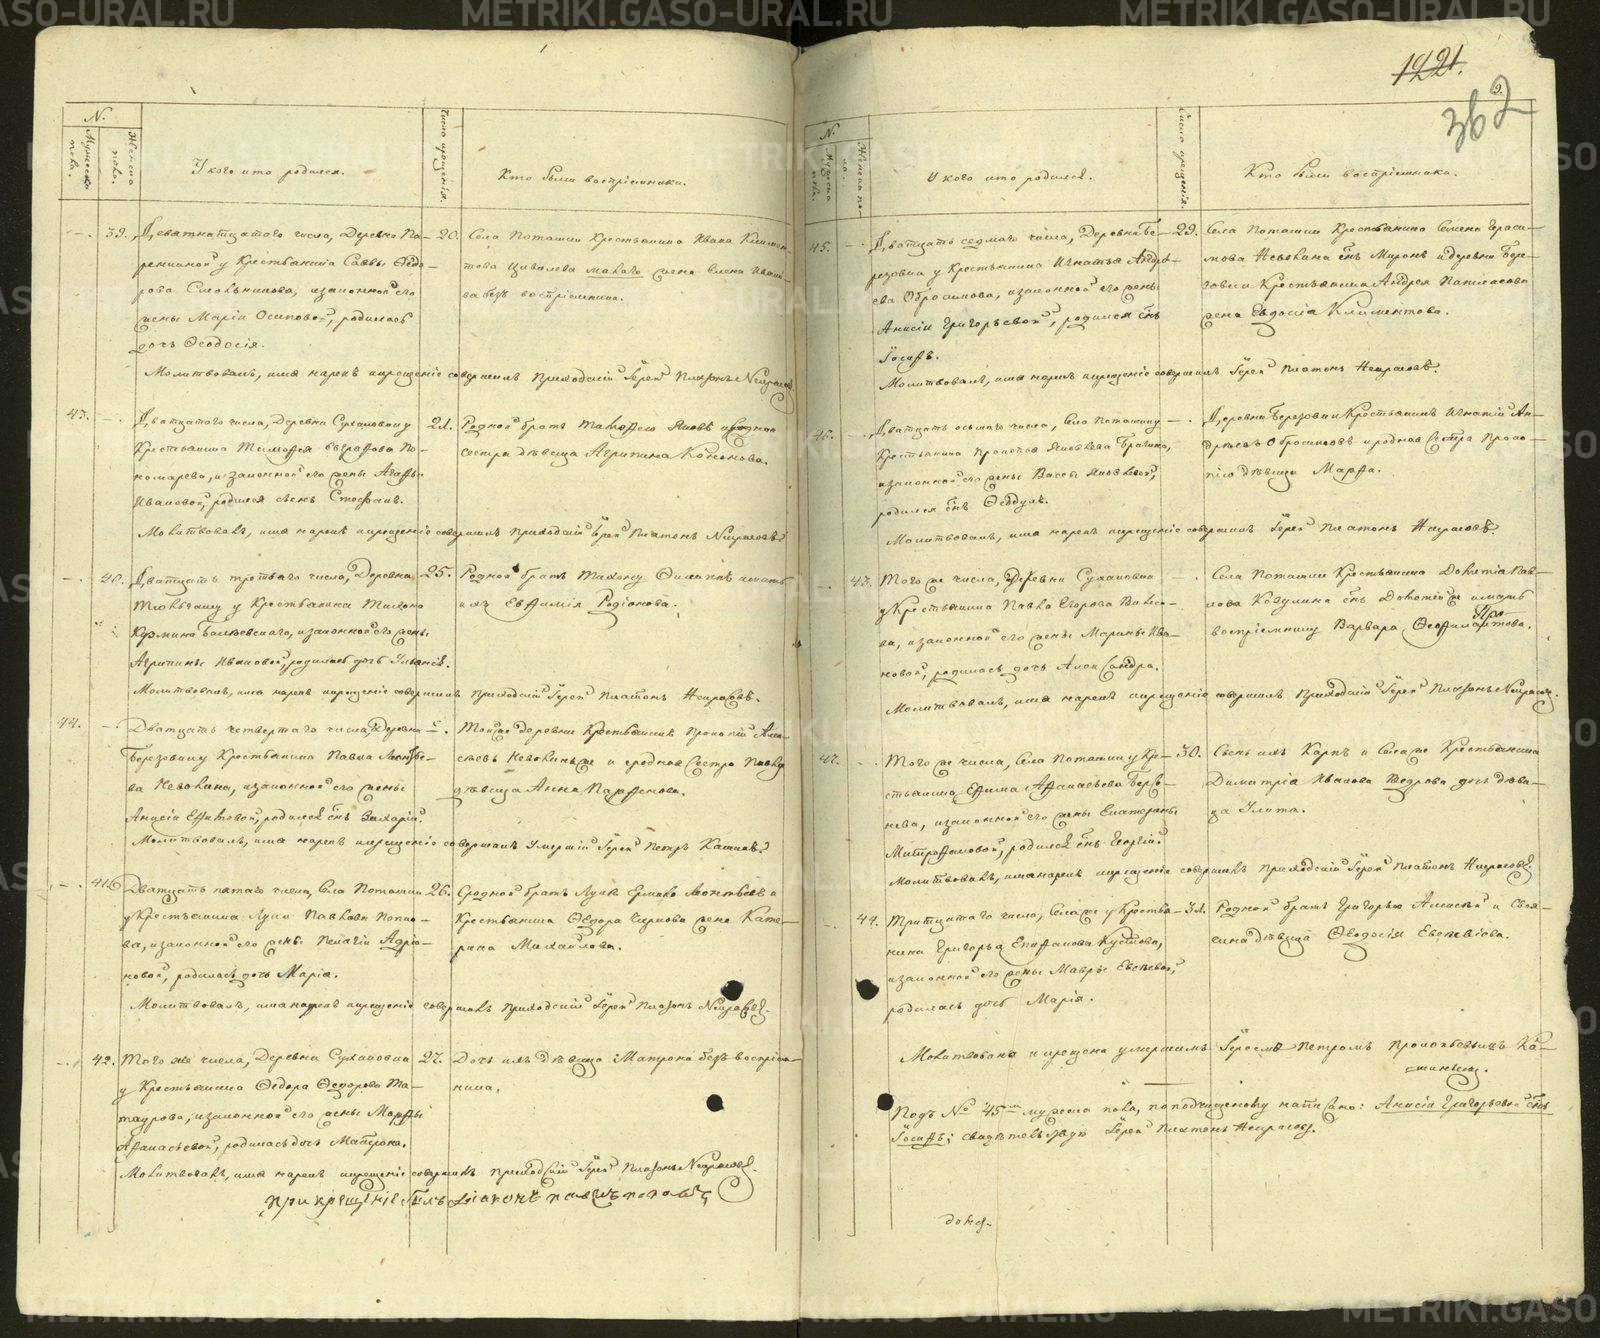 METRIKI.GASO-URAL.RU
1221.
362
9.
№.
Мужеска пола.
Женска пола.
У кого кто родился.
Число крещенія.
Кто были воспріемники.
39. Деватнатцатого числа, Деревни Па-
у Крестьянина Саввы Ѳедо-
рова изаконной его
жены Маріи Осиповой, родилась
дочь Ѳеодосія.
20. Села Поташки Крестьянина Ивана Климен-
това жена Елена Ивано-
ва безъ воспріемника.
Молитвовалъ, имя нарекъ икрещеніе совершилъ Приходскій Іерей Платонъ Некрасовъ.
43. Дватцатого числа, Деревни Сухановки у
Крестьянина Тимофея Евграфова По-
номарева, изаконной его жены Агафьи
Ивановой, родился сынъ Стефанъ.
21. Родной братъ Тимофею Яковъ иродная
сестра дѣвица Агрипина Кононова.
Молитвовалъ, имя нарекъ икрещеніе совершилъ Приходскій Іерей Платонъ Некрасовъ.
40. Дватцать третьяго числа, Деревни
у Крестьянина Тихона
Кузмина изаконной его жены
Агрипины Ивановой, родилась дочь Ульянія.
25. Родной братъ Тихону Филиппъ имать
ихъ Евфимія Родіонова.
Молитвовалъ, имя нарекъ икрещеніе совершилъ Приходскій Іерей Платонъ Некрасовъ.
44. Дватцать четвертаго числа, Деревни
Березовки у Крестьянина Павла Леонтье-
ва Невокина, изаконной его жены
Анисіи Ефимовой, родился сынъ Захарій.
Тойже деревни Крестьянинъ Прокопій Але-
ксѣевъ и сродная сестра Павлу
дѣвица Анна Парфенова.
Молитвовалъ, имя нарекъ икрещеніе совершилъ Умершій Іерей Петръ Кашинъ.
41. Дватцать пятаго числа, Села Поташки
у Крестьянина Луки Павлова Попко-
ва, изаконной его жены Пелагіи Адріа-
новой, родилась дочь Марія.
26. Сродной братъ Луки Ермило Леонтьевъ и
Крестьянина Ѳедора Чиркова жена Кате-
рина Михайлова.
Молитвовалъ, имя нарекъ икрещеніе совершилъ Приходскій Іерей Платонъ Некрасовъ.
42. Того же числа, Деревни Сухановки
у Крестьянина Ѳедора Ѳедорова Та-
таурова, изаконной его жены Марфы
Афанасьевой, родилась дочь Матрона.
27. Дочь ихъ дѣвица Матрона безъ воспріем-
ника.
Молитвовалъ, имя нарекъ икрещеніе совершилъ приходскій Іерей Платонъ Некрасовъ.
при крещеніе былъ діаконъ павелъ поповъ
№.
Мужеска пола.
Женска пола.
У кого кто родился.
Число крещенія.
Кто были воспріемники.
45. Дватцать седмаго числа, Деревни Бе-
резовки у Крестьянина Игнатья Андре-
ева Обросимова, изаконной его жены
Анисіи Григорьевой, родился сынъ
Іосифъ.
29. Села Поташки Крестьянина Семена Гераси-
мова Невокина сынъ Миронъ идеревни Бере-
зовки Крестьянина Андрея
жена Евдосія Климентова.
Молитвовалъ, имя нарекъ икрещеніе совершилъ Іерей Платонъ Некрасовъ.
46. Дватцать осьмаго числа, Села Поташки у
Крестьянина Прокопья Яковлева
изаконной его жены Васы Яковлевой,
родился сынъ Ѳеодулъ.
Деревни Березовки Крестьянинъ Игнатій Ан-
дреевъ Обросимовъ иродная сестра Проко-
пію дѣвица Марфа.
Молитвовалъ, имя нарекъ икрещеніе совершилъ Іерей Платонъ Некрасовъ.
43. Того же числа, Деревни Сухановки
у Крестьянина Павла Егорова
изаконной его жены Марины Ива-
новой, родилась дочь Александра.
Села Поташки Крестьянина Дометія Пав-
лова сынъ
воспріемница Варвара Ѳеофилактова.
Молитвовалъ, имя нарекъ икрещеніе совершилъ Приходскій Іерей Платонъ Некрасовъ.
47. Того же числа, Села Поташки у Кре-
стьянина Ефима Афанасьева
изаконной его жены Екатерины
Митрофановой, родился сынъ Георгій.
30. Сынъ ихъ Карпъ и Селаже Крестьянина
Димитрія Иванова дочь дѣви-
ца Улита.
Молитвовалъ, имянарекъ икрещеніе совершилъ Приходскій Іерей Платонъ Некрасовъ.
44. Тритцатаго числа, Селаже у Крестья-
нина Григорья Епифанова Кустова,
изаконной его жены Мавры Евсѣевой,
родилась дочь Марія.
31. Родной братъ Григорью Алексѣй и Своя-
сина дѣвица Ѳеодосія Евсевіева.
Молитвована и крещена умершимъ Іереемъ Петромъ Прокопьевымъ Ка-
шинымъ.
Подъ № 45м мужеска пола, поподчищеному написано: Анисіи Григорьевой сынъ
Іосифъ; свидѣтельствую Іерей Платонъ Некрасовъ.